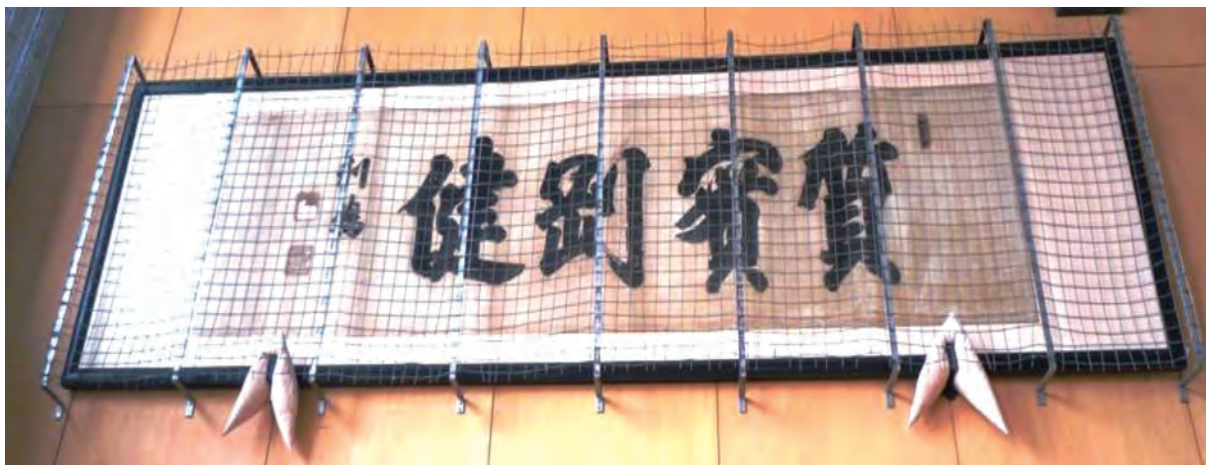 質實剛健